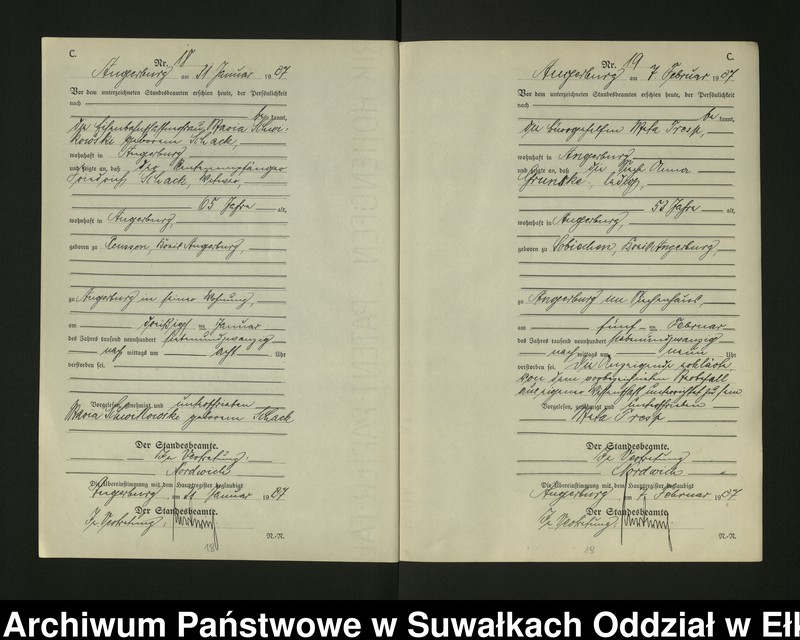 C.
Nr. 18
Angerburg am 31 Januar 1927
Vor dem unterzeichneten Standesbeamten erschien heute, der Persönlichkeit
nach
be kannt,
die Maria
geborene Schack,
wohnhaft in Angerburg
und zeigte an, daß der Rentenempfänger
Schack, Witwer,
65 Jahre alt,
wohnhaft in Angerburg,
geboren zu Kreis Angerburg,
zu Angerburg in seiner Wohnung,
am dreißigsten Januar
des Jahres tausend neunhundert siebenundzwanzig
nach mittags um acht Uhr
verstorben sei.
Vorgelesen, genehmigt und unterschrieben
Maria geborene Schack
Der Standesbeamte.
In Vertretung
Nordwich
Die Übereinstimmung mit dem Hauptregister beglaubigt
Angerburg, am 31 Januar 1927
Der Standesbeamte.
In Vertretung.
N.-N.
18
C.
Nr. 19
Angerburg am 7 Februar 1927.
Vor dem unterzeichneten Standesbeamten erschien heute, der Persönlichkeit
nach
be kannt,
die Bürogehilfin Meta
wohnhaft in Angerburg
und zeigte an, daß die Anna
ledig,
53 Jahre alt,
wohnhaft in Angerburg,
geboren zu Sobiechen, Kreis Angerburg,
zu Angerburg im Siechenhaus,
am fünften Februar
des Jahres tausend neunhundert siebenundzwanzig
nach mittags um neun Uhr
verstorben sei. Die Anzeigende erklärte
von dem vorbezeichneten Sterbefall
aus eigener Wissenschaft unterrichtet zu sein
Vorgelesen, genehmigt und unterschrieben
Meta
Der Standesbeamte.
In Vertretung
Nordwich
Die Übereinstimmung mit dem Hauptregister beglaubigt
Angerburg, am 7. Februar 1927.
Der Standesbeamte.
In Vertretung.
N.-N.
19
Archiwum Państwowe w Suwałkach Oddział w Eł